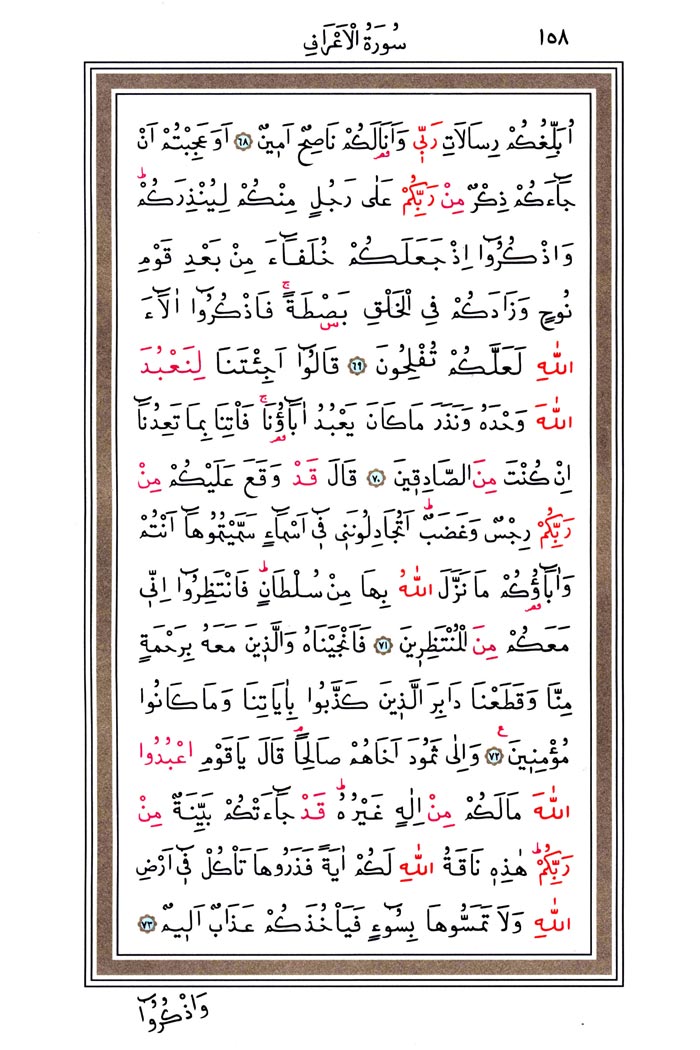 ١٥٨
سُورَةُ الْاَعْرَافِ
اُبَلِّغُكُمْ رِسَالَاتِ رَبّ۪ي وَاَنَا۬ لَكُمْ نَاصِحٌ اَم۪ينٌ ﴿٦٨﴾ اَوَعَجِبْتُمْ اَنْ
جَٓاءَكُمْ ذِكْرٌ مِنْ رَبِّكُمْ عَلٰى رَجُلٍ مِنْكُمْ لِيُنْذِرَكُمْۜ
وَاذْكُرُٓوا اِذْ جَعَلَكُمْ خُلَفَٓاءَ مِنْ بَعْدِ قَوْمِ
نُوحٍ وَزَادَكُمْ فِي الْخَلْقِ بَصْۣطَةًۚ فَاذْكُرُٓوا اٰلَٓاءَ
اللّٰهِ لَعَلَّكُمْ تُفْلِحُونَ ﴿٦٩﴾ قَالُٓوا اَجِئْتَنَا لِنَعْبُدَ
اللّٰهَ وَحْدَهُ وَنَذَرَ مَا كَانَ يَعْبُدُ اٰبَٓاؤُ۬نَاۚ فَأْتِنَا بِمَا تَعِدُنَٓا
اِنْ كُنْتَ مِنَ الصَّادِق۪ينَ ﴿٧٠﴾ قَالَ قَدْ وَقَعَ عَلَيْكُمْ مِنْ
رَبِّكُمْ رِجْسٌ وَغَضَبٌۜ اَتُجَادِلُونَن۪ي ف۪ٓي اَسْمَٓاءٍ سَمَّيْتُمُوهَٓا اَنْتُمْ
وَاٰبَٓاؤُ۬كُمْ مَا نَزَّلَ اللّٰهُ بِهَا مِنْ سُلْطَانٍۜ فَانْتَظِرُٓوا اِنّ۪ي
مَعَكُمْ مِنَ الْمُنْتَظِر۪ينَ ﴿٧١﴾ فَاَنْجَيْنَاهُ وَالَّذ۪ينَ مَعَهُ بِرَحْمَةٍ
مِنَّا وَقَطَعْنَا دَابِرَ الَّذ۪ينَ كَذَّبُوا بِاٰيَاتِنَا وَمَا كَانُوا
مُؤْمِن۪ينَ۟ ﴿٧٢﴾ وَاِلٰى ثَمُودَ اَخَاهُمْ صَالِحًاۢ قَالَ يَاقَوْمِ اعْبُدُوا
اللّٰهَ مَالَكُمْ مِنْ اِلٰهٍ غَيْرُهُۜ قَدْ جَٓاءَتْكُمْ بَيِّنَةٌ مِنْ
رَبِّكُمْۜ هٰذِه۪ نَاقَةُ اللّٰهِ لَكُمْ اٰيَةً فَذَرُوهَا تَأْكُلْ ف۪ٓي اَرْضِ
اللّٰهِ وَلَا تَمَسُّوهَا بِسُٓوءٍ فَيَأْخُذَكُمْ عَذَابٌ اَل۪يمٌ ﴿٧٣﴾
وَاذْكُرُٓوا